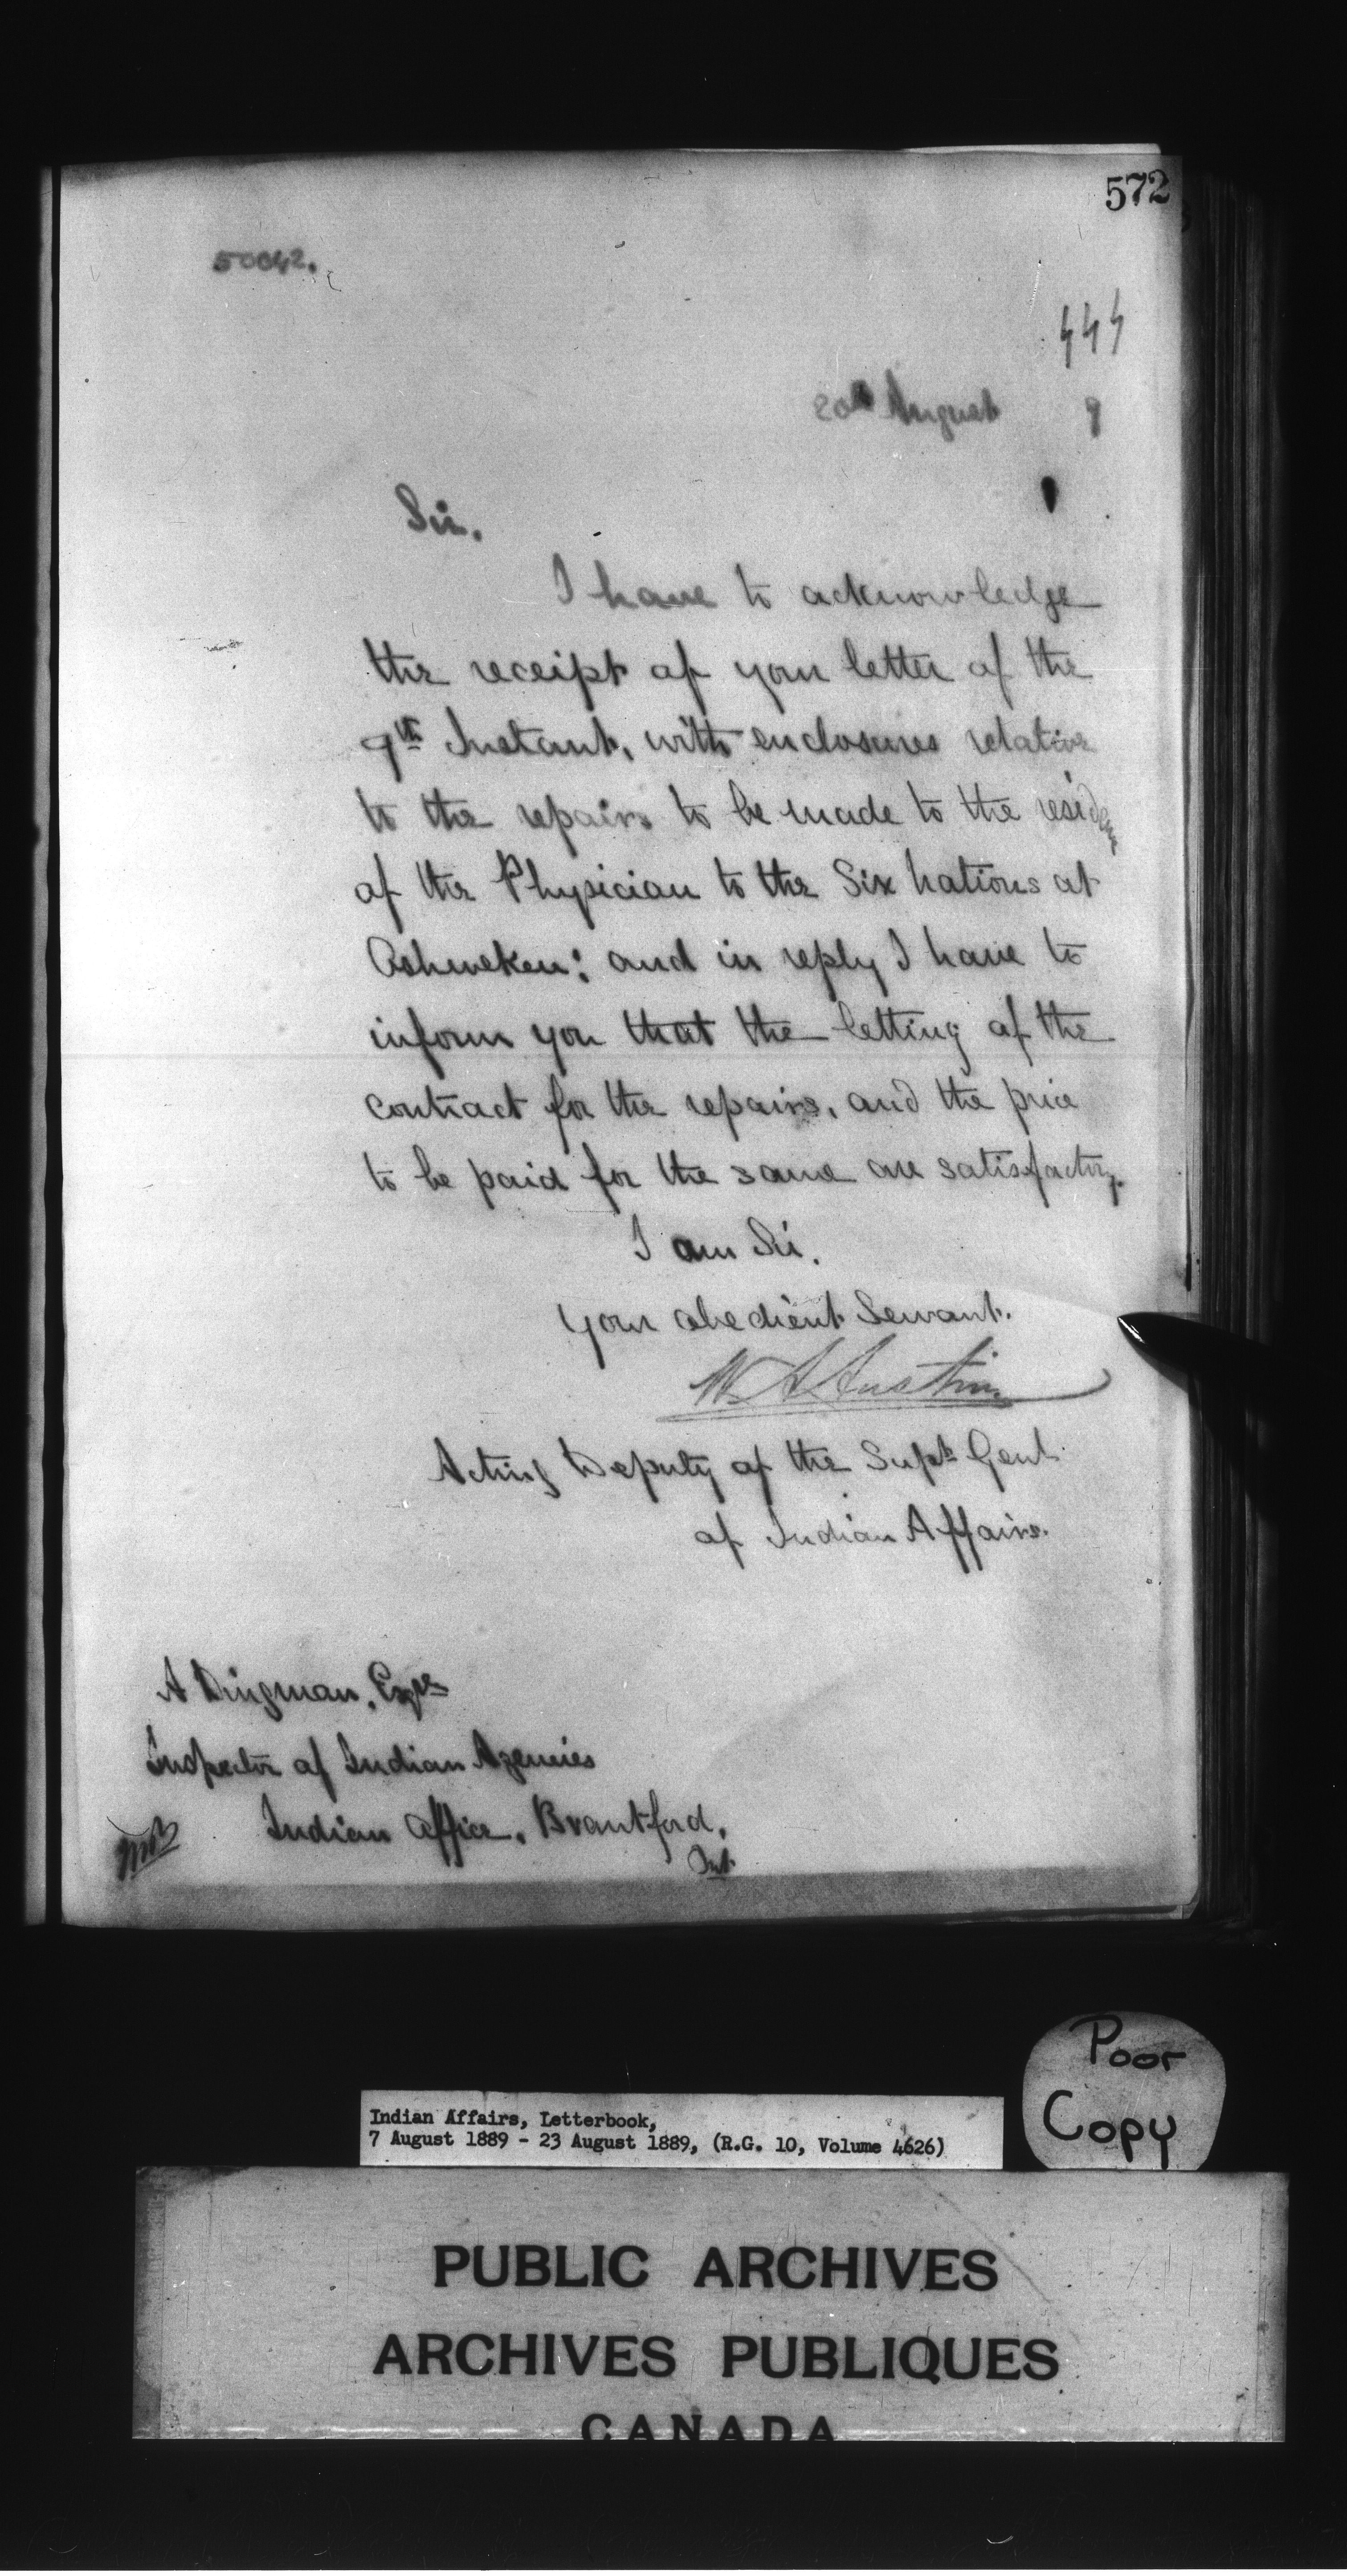 572
50042.
444
20th August 9
Sir.
I have to acknowledge
the receipt of your letter of the
9th Instant, with enclosures relative
to the repairs to be made to the residence
of the Physician to the Six Nations at
Oshweken: and in reply I have to
inform you that the letting of the
contract for the repairs, and the price
to be paid for the same are satisfactory.
I am Sir.
Your obedient Servant.
W A Austin
Acting Deputy of the Supt Genl
of Indian Affairs.
A Dingman, Esqre
Inspector of Indian Agencies
Indian Office, Brantford,
Ont
Poor
Copy
Indian Affairs, Letterbook,
7 August 1889 - 23 August 1889, (R.G. 10, Volume 4626)
PUBLIC ARCHIVES
ARCHIVES PUBLIQUES
CANADA